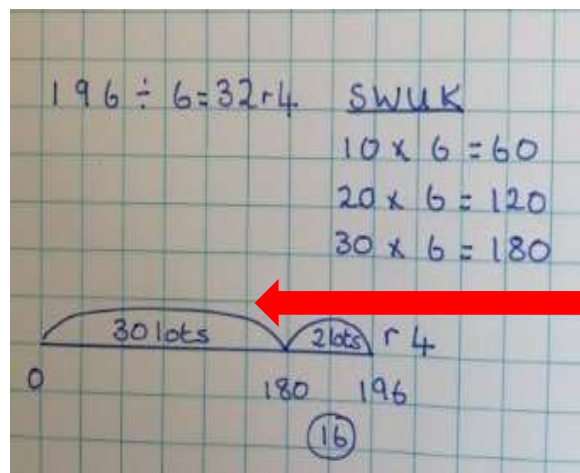 196 ÷ 6 = 32 r 4
SWUK
10 x 6 = 60
20 x 6 = 120
30 x 6 = 180
30 lots 2 lots r 4
0 180 196
16